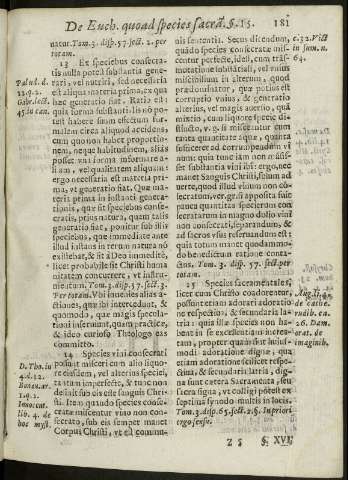 De Euch. quoad species sacrā. §. 15. 181
natur. Tom. 3. disp. 57. sect. 2. per
totam.
13 Ex speciebus consecra-
tis nulla potest substantia gene-
rari, vel nutriri, sed necessaria
est aliqua materia prima, ex qua
hæc generatio fiat. Ratio est:
quia forma substantialis nō po-
test habere suum effectum for-
malem circa aliquod accidens,
cum quo non habet proportio-
nem, neque habitudinem, aliàs
posset vna forma informare a-
liam, vel qualitatem: ergo
necessaria est materia pri-
ma, vt generatio fiat. Quæ ma-
teria prima in instanti genera-
tionis, quæ sit speciebus conse-
cratis, prius natura, quam talis
generatio fiat, ponitur sub illis
speciebus, quæ immediatè ante
illud instans in rerum natura nō
existebat, & fit à Deo immediatè,
licet probabile sit Christi huma-
nitatem concurrere, vt instru-
mentum. Tom. 3. disp. 57. sect. 3.
Per totam. Vbi inuenies alias a-
ctiones, quæ ibi interueniunt,
quomodo, quæ magis specula-
tioni inseruiunt, quam practicæ,
& ideo curioso Theologo eas
committo.
14 Species vini consecrati
possunt misceri cum alio liquo-
re eiusdem, vel alterius speciei,
tatum imperfectè, & tunc non
desinit sub eis esse sanguis Chri-
sti. Item quando species conse-
cratæ miscentur vino non con-
secrato, sub eis semper manet
Corpus Christi, vt est commu-
Palud. d.
12. q. 2.
Gabr. lect.
45. in can.
D. Tho. in
4. d. 12.
Bonau. ar.
1. q. 2.
Innocent.
lib. 4. de
hoc myst.
nis sententia. Secus dicendum,
quādo species consecratæ mis-
centur perfectè, idest, cum trās-
mutatione substātiali, vel vnius
mixtilium in alterum, quod
prædominatur, quæ potius est
corruptio vnius, & generatio
alterius, vel magis augetio, quā
mixtio, cum liquore specie di-
stincto, v. g. si misceantur cum
tanta quantitate aquæ, quanta
sufficeret ad corrumpendum vi-
num: quia tunc iam non maneis-
set substantia vini ibi: ergo nec
manet Sanguis Christi, solum ad
uerte, quod illud vinum non cō-
secratum, vergis appositā fuis-
cum quantitate specierum con-
secratarum in magno dolio vini
non consecrati, referendum, & ad
sacros vsus referuandum est:
quia totum manet quodammo-
do benedictum ratione contac-
tus. Tom. 3. disp. 57. sect. per
totam.
15 Species sacramentales,
licet cum Christo coadorentur,
possunt etiam adorari adoratio-
ne respectiua, & secundaria la-
tria: quia illæ species non ha-
bent in se excellentiam increa-
tam, propter quam sint huius-
modi adoratione dignæ, quia
etiam adoratione scilicet respe-
ctiua, & secundaria latria, di-
gna sunt cætera Sacramenta, seu
sacra signa, vt colligi potest ex
septima synodo multis in locis.
Tom. 3. disp. 65. sect. 2. §. In priori
ergo sensu.
c. 32. Vict.
in sum. n.
64.
August. in
de cathe.
rudib. ca.
26. Dam.
orat. de
imaginib.
Z 5 §. XVI.